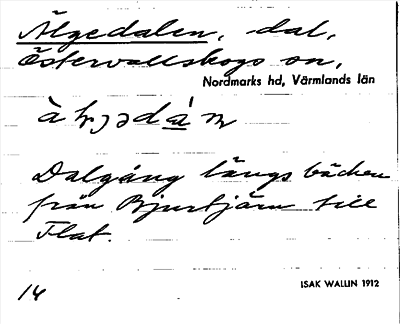 Älgedalen, dal,
Östervallskogs sn,
Nordmarks hd, Värmlands län
Dalgång längs bäcken
från Bjurtjärn till
Flat.
14 ISAK WALLIN 1912